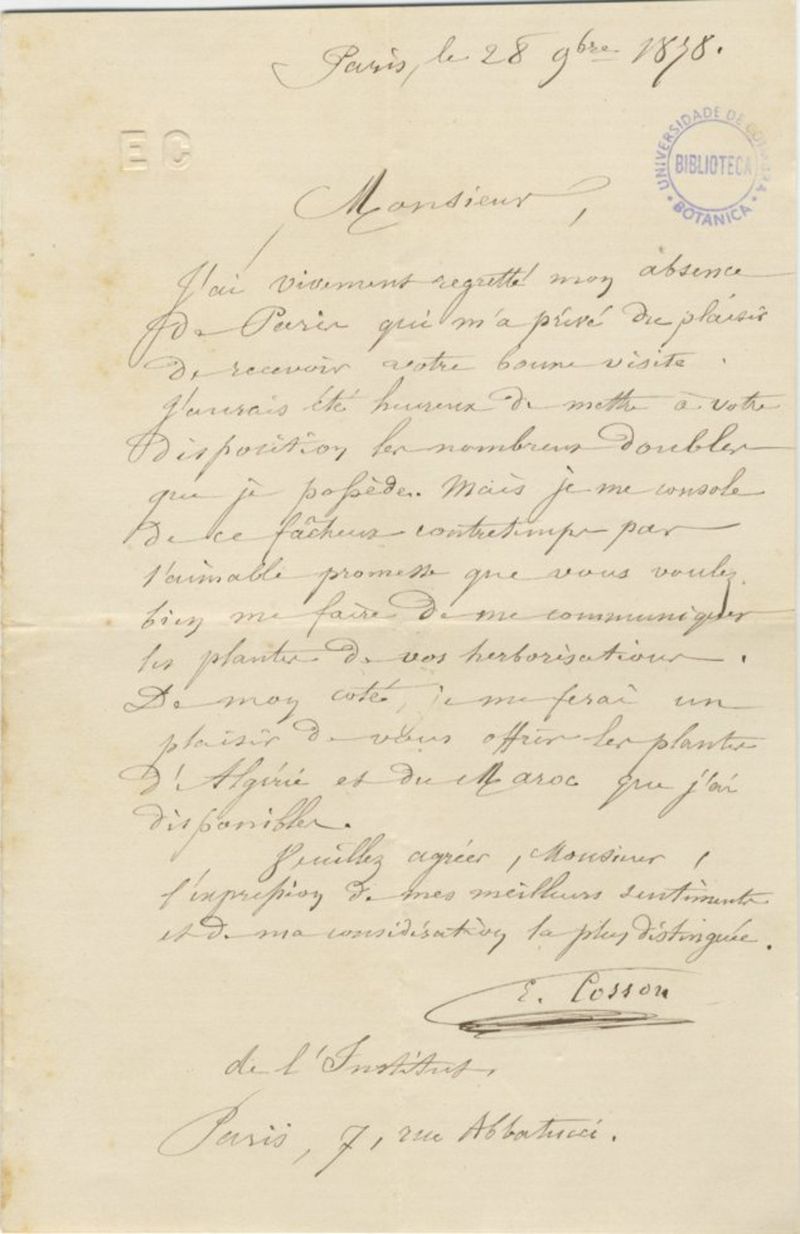 Paris, le 28 9bre 1878.
E C
UNIVERSIDADE DE COIMBRA
BIBLIOTECA
BOTANICA
Monsieur,
J'ai vivement regretté mon absence
de Paris qui m'a privé du plaisir
de recevoir votre bonne visite.
J'aurais été heureux de mettre à votre
disposition les nombreux doubles
que je possède. Mais je me console
de ce fâcheux contretemps par
l'aimable promesse que vous voulez
bien me faire de me communiquer
les plantes de vos herborisations.
De mon coté, je me ferai un
plaisir de vous offrir les plantes
d'Algérie et du Maroc que j'ai
disponibles.
Veuillez agréer, Monsieur,
l'expression de mes meilleurs sentiments
et de ma considération la plus distinguée.
E. Cosson
de l'Institut,
Paris, 7, rue Abbatucci.